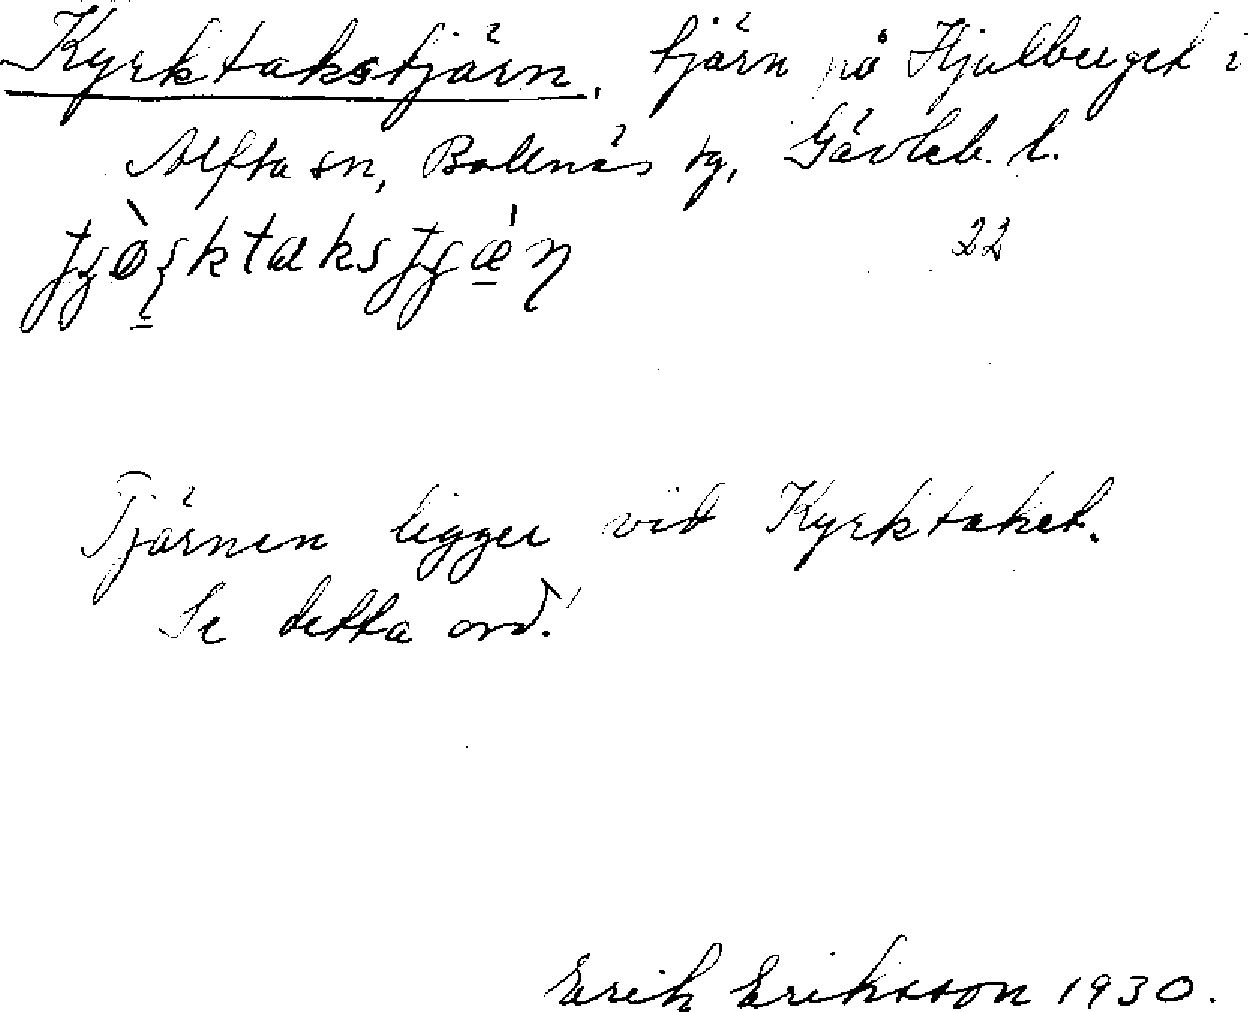 Kyrktakstjärn, tjärn på Hjulberget i
Alfta sn, Bollnäs tg, Gävleb. l.
22
Tjärnen ligger vid Kyrktaket.
Se detta ord!
Erik Eriksson 1930.